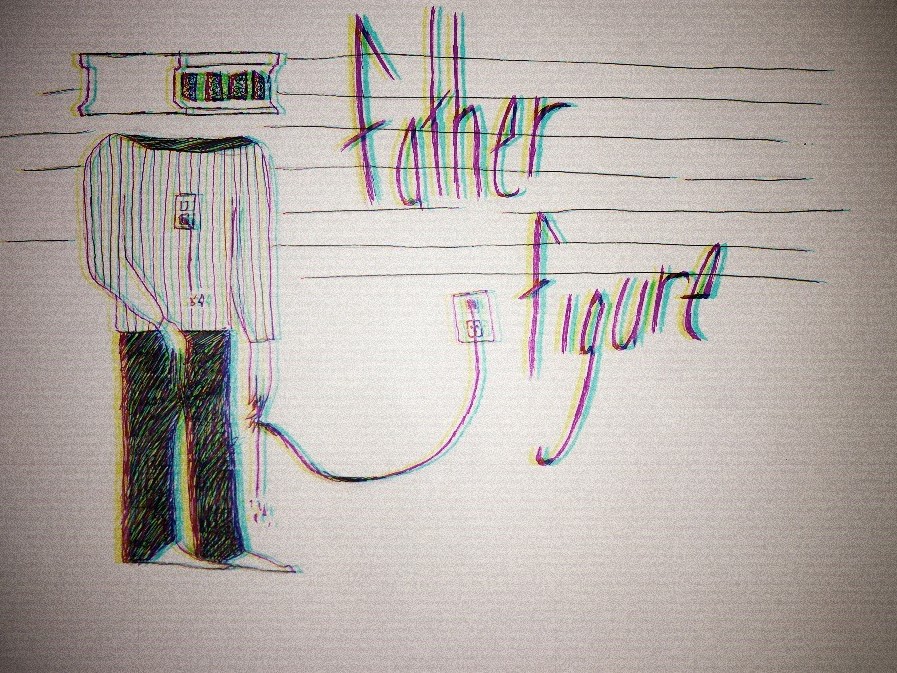 Father
figure